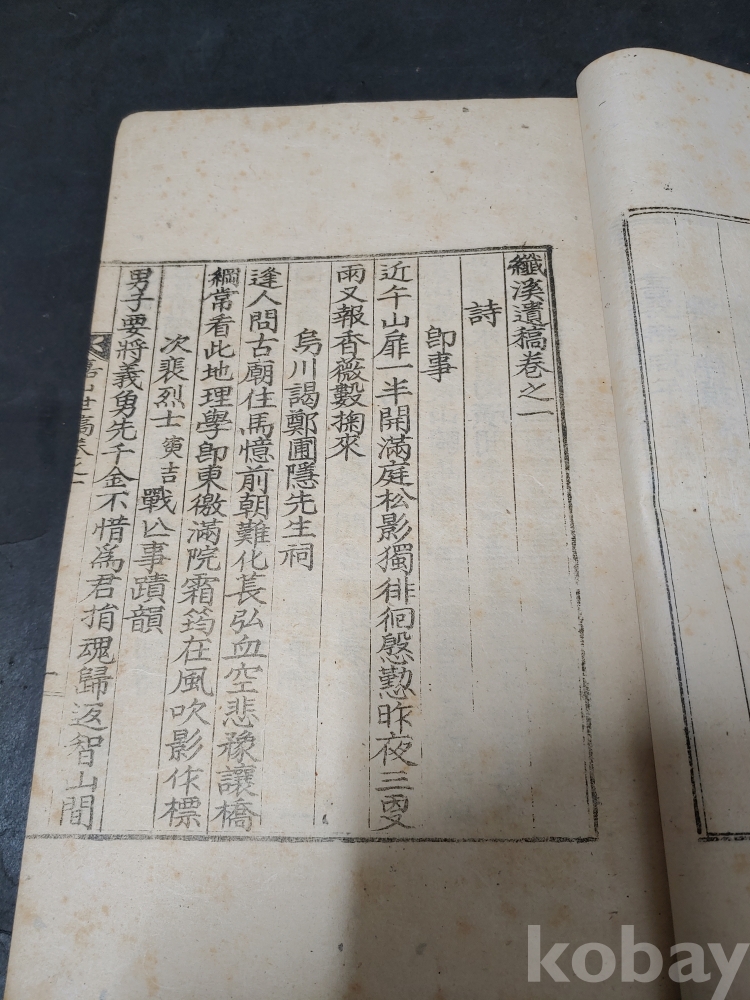 纖溪遺稿卷之一
詩
卽事
近午山扉一半開滿庭松影獨徘徊慇懃昨夜三更
雨又報香薇數掬來
烏川謁鄭圃隱先生祠
逢人問古廟住馬憶前朝難化萇弘血空悲豫讓橋
綱常看此地理學卽東徼滿院霜筠在風吹影作標
次裴烈士寅吉戰亾事蹟韻
男子要將義勇先千金不惜爲君捐魂歸返智山間
世稿卷之一
kobay